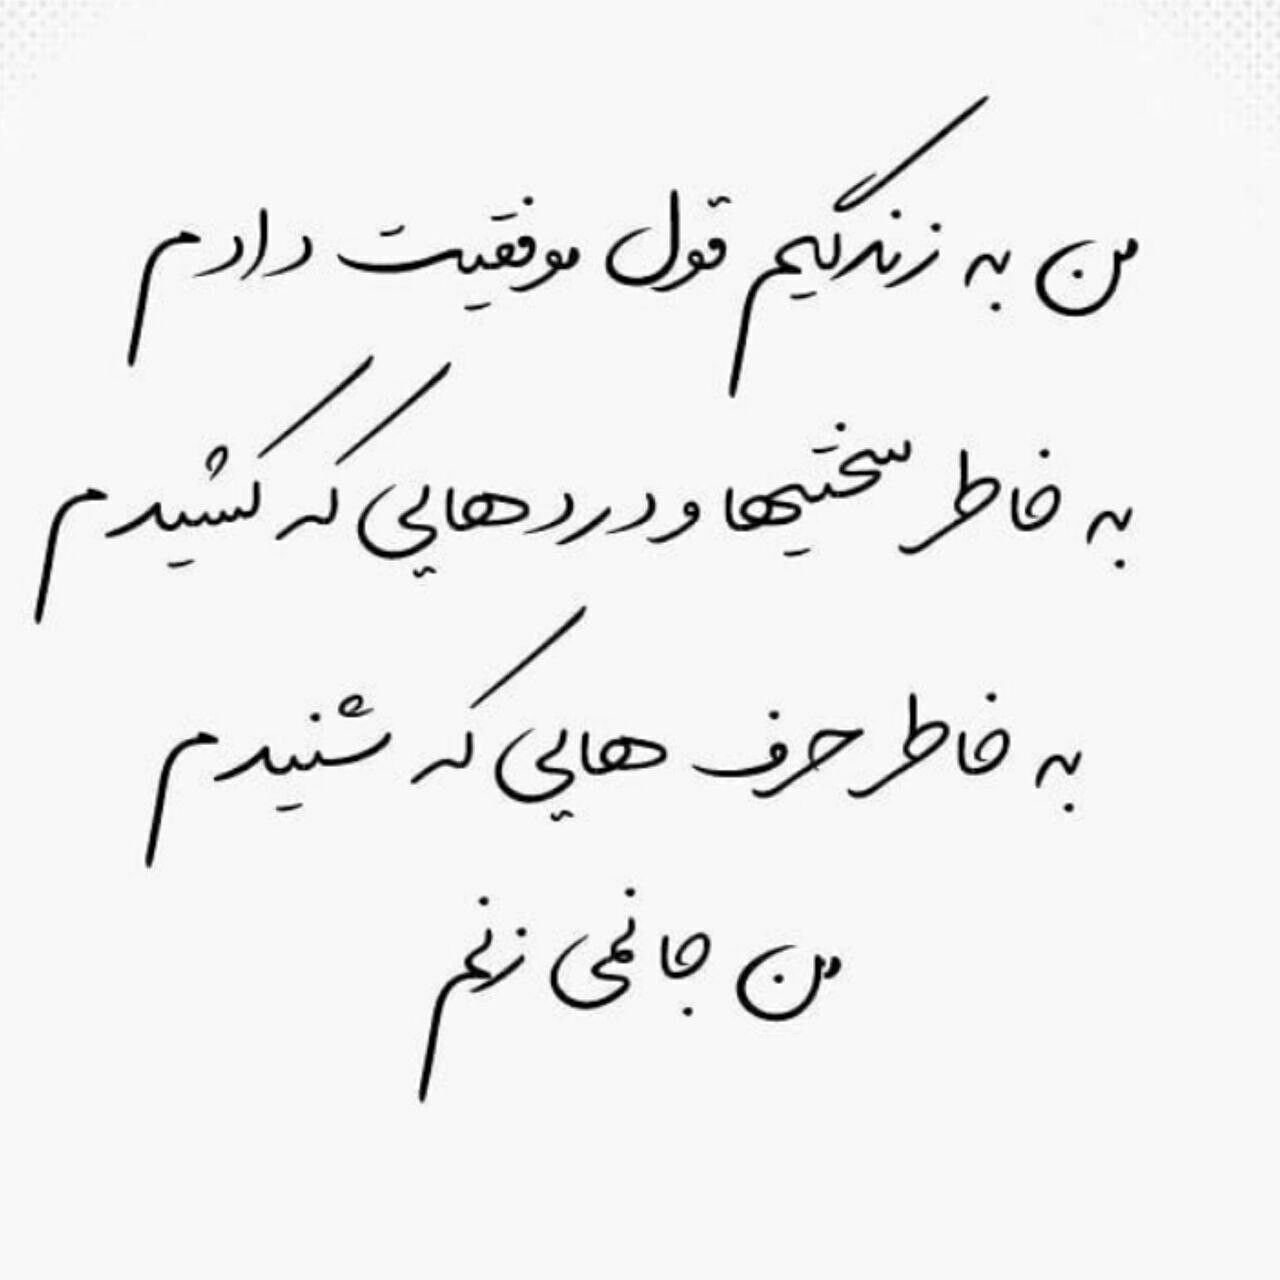 من به زندگیم قول موفقیت دادم
به خاطر سختیها و دردهایی که کشیدم
به خاطر حرف هایی که شنیدم
من جا نمی زنم